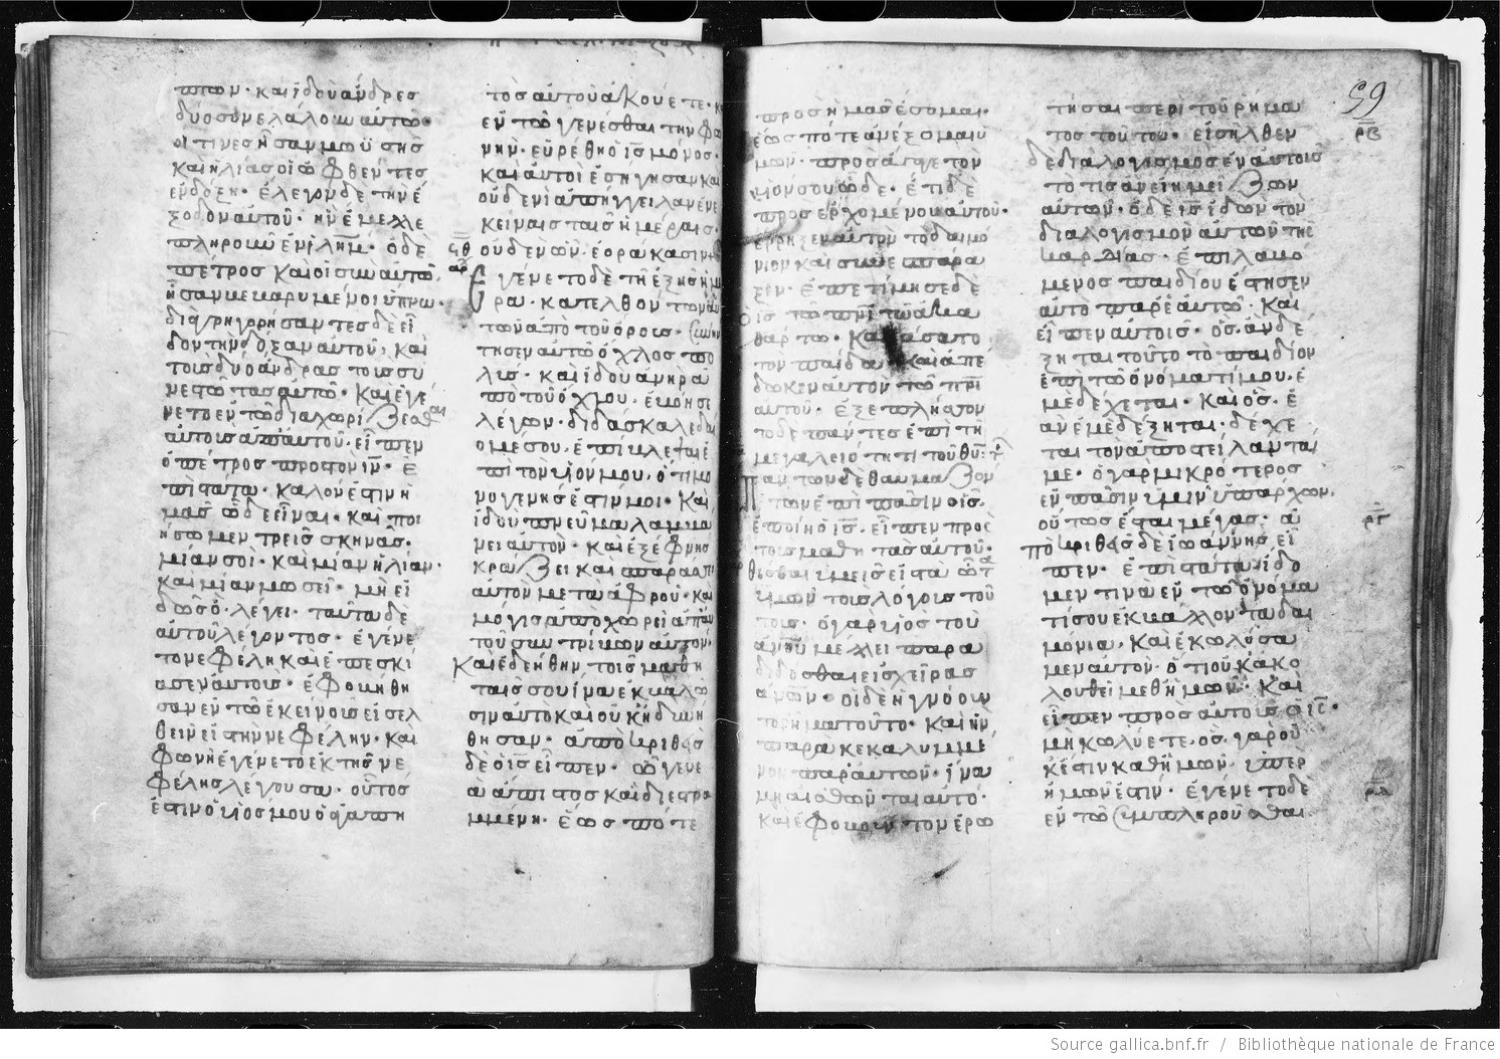 πτων· και ϊδου άνδρες
δύο συνελάλουν αυτω·
οι τινες ήσαν μωϋσής
και ηλίας οι ὀφθέντες
εν δόξη· έλεγον δε την έ
ξοδον αυτού· ην έμελλε
πληρούν εν ϊλημ· ο δε
πέτρος και οι συν αυτω
ήσαν βεβαρυμένοι ύπνω·
διαγρηγορήσαντες δε εί
δον την δόξαν αυτού, και
τους δύο άνδρας τους συ
νεστωτας αυτω· και εγέ
νετο εν τω διαχωρίζεσθαι
αυτους απ αυτού· είπεν
ο πέτρος προς τον ιν· ε
πιστάτα· καλον έστιν η
μας ωδε είναι· και ποι
ήσωμεν τρεις σκηνας·
μίαν σοι· και μίαν ηλίαν·
και μίαν μωσει· μη ει
δως ὃ λέγει· ταυτα δε
αυτου λέγοντος· εγένε
το νεφέλη και επεσκί
ασεν αυτους· εφοβήθη
σαν εν τω εκείνους εισελ
θειν εις την νεφέλην· και
φωνη εγένετο εκ της νε
φέλης λέγουσα· ούτος
έστιν ο υιος μου ο αγαπη
τος αυτού ακούετε· κ
εν τω γενέσθαι την φω
νην· ευρέθη ο ις μόνος·
και αυτοι εσήγησαν και
ουδενι απήγγειλαν εν ε
κείναις ταις ημέραις·
ουδεν ων εοράκασιν
Εγένετο δε τη εξης ημ
ρα· κατελθόντων αυ
των απο του όρους· συνήν
τησεν αυτω όχλος πο
λυς· και ιδου ανηρ α
πο του όχλου· εβόησε
λέγων· διδάσκαλε δέ
ομε σου· επιβλεψαι ε
πι τον υιόν μου, ότι μο
νογενής έστιν μοι· και
ιδου πνευμα λαμβά
νει αυτον· και εξέφνης
κράζει και σπαράσσει
αυτον μετα αφρού· και
μόγις αποχωρει απ αυ
του συντρίβων αυτον·
Και εδεήθην τοις μαθη
ταις σου ίνα εκβαλω
σιν αυτο και ουκ ηδυνή
θησαν· αποκριθεις
δε ο ις είπεν· ω γενε
α άπιστος και διεστρα
μμένη· έως πότε
προς ημας έσομαι·
έως πότε ανέξομαι ϋ
μων· προσάγαγε τον
υιόν σου ωδε· έτι δε
προσερχομένου αυτού·
έρρηξεν αυτον το δαιμό
νιον και συνεσπάρα
ξεν· επετίμησε δε
ο ις τω πνι τω ακα
θάρτω· Και ιάσατο
τον παίδα και απέ
δωκεν αυτον τω πρι
αυτού· εξεπλήσσον
το δε πάντες επι τη
μεγαλειότητι του θυ·
Πάντων δε θαυμαζόν
των επι πασιν οις
εποίει ο ις· είπεν προς
τους μαθητας αυτου·
θέσθαι υμεις εις τα ωτα
υμων τους λόγους τού
τους· ο γαρ υιος του
ανου μέλλει παρα
δίδοσθαι εις χείρας
ανων· οι δε ηγνόουν
το ρημα τούτο· και ην
παρακεκαλυμμέ
νον παρ αυτων· ίνα
μη αισθωνται αυτό·
και εφοβούντο ερω
τήσαι περι του ρήμα
τος τούτου· εισηλθεν
δε διαλογισμος εν αυτοις
το τις αν είη μείζων
αυτων· ο δε ις ίδων τον
διαλογισμον αυτων της
καρδίας· επιλαβό
μενος παιδίου έστησεν
αυτο παρ εαυτω· και
είπεν αυτοις· ος αν δέ
ξηται τούτο το παιδίον
επι τω ονόματί μου, ε
με δέχεται· και ος ε
αν εμε δέξηται· δέχε
ται τον αποστείλαντά
με· ο γαρ μικρότερος
εν πασιν υμιν υπάρχων,
ούτως έσται μέγας· α
ποκριθεις δε ιωάννης εί
πεν· επιστάτα, είδο
μεν τινα εν τω ονόμα
τί σου εκβάλλοντα δαι
μόνια, και εκωλύσα
μεν αυτον· ότι ουκ ακο
λουθει μεθ ημων· και
είπεν προς αυτους ο ις·
μη κωλύετε· ος γαρ ου
κ έστιν καθ ημων· υπερ
ημων έστιν· εγένετο δε
εν τω συμπληρούσθαι
59
ρβ
ργ
ρδ